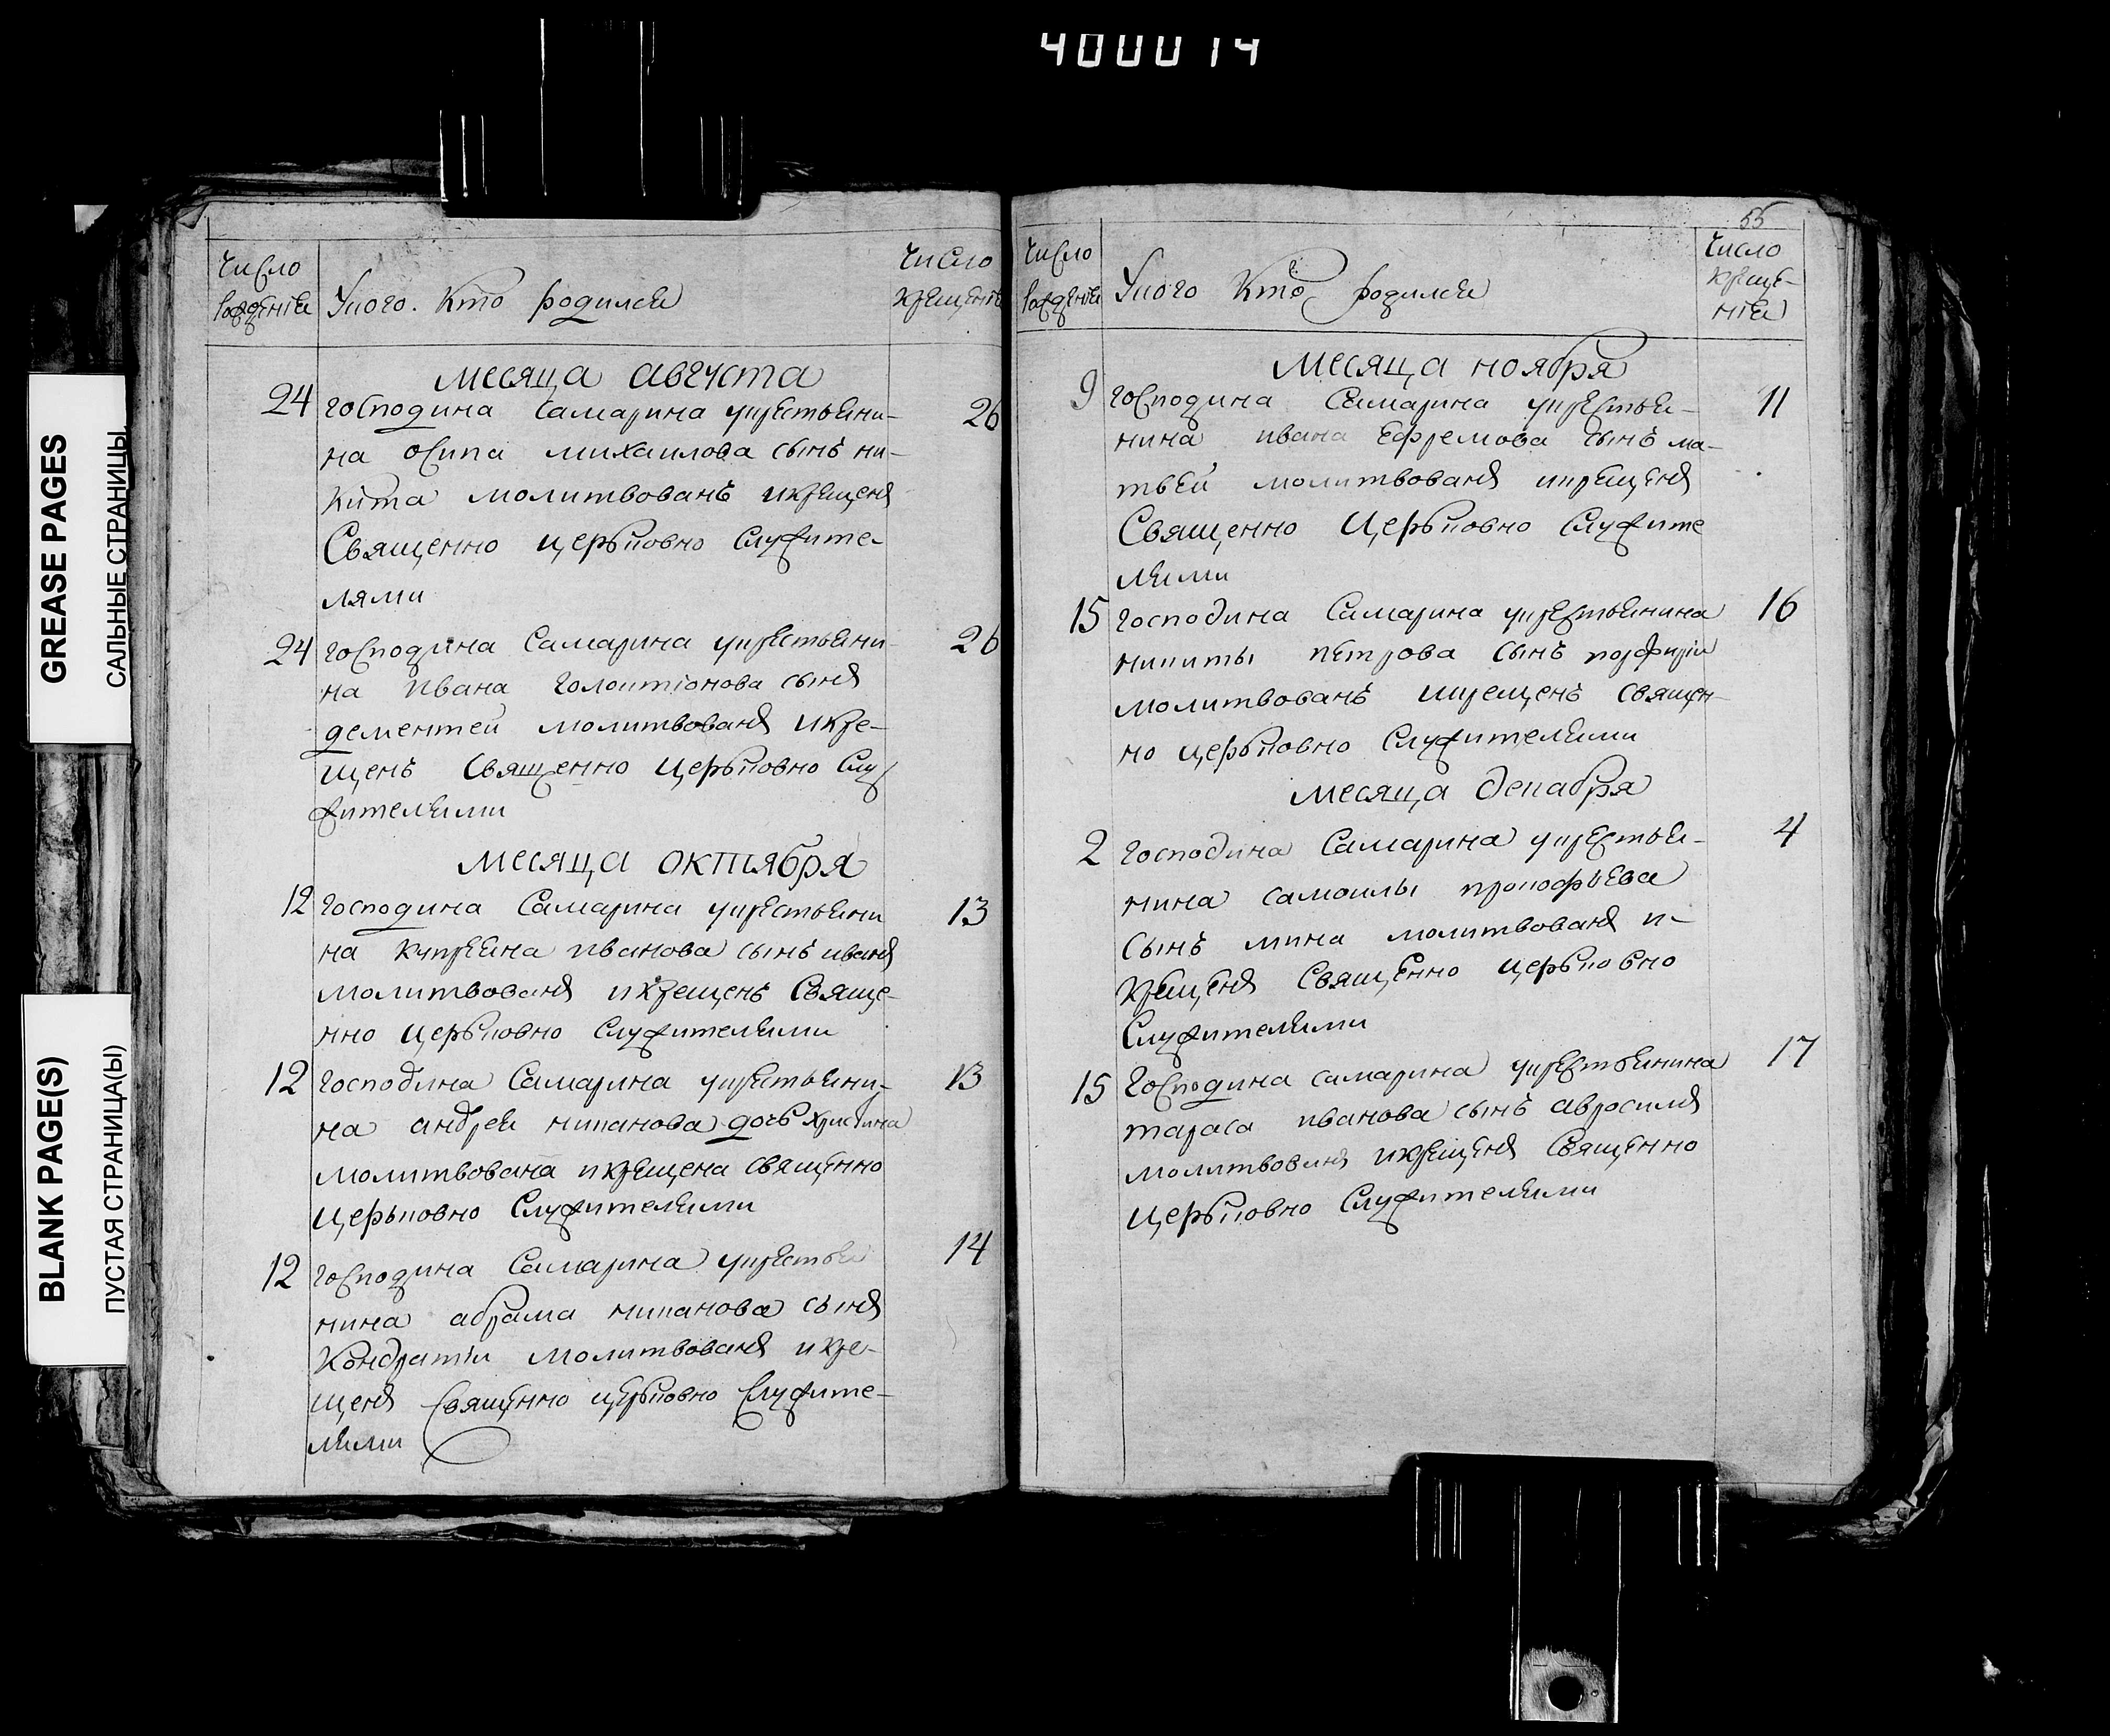 400014
GREASE PAGES
САЛЬНЫЕ СТРАНИЦЫ
BLANK PAGE(S)
ПУСТАЯ СТРАНИЦА(Ы)
Число рождения
Укого. Кто родился
Число крещения
месяца августа
24 господина Самарина укрестьяни- 26
на осипа михаилова сынъ ни-
кита молитвованъ икрещенъ
Священно церьковно Служите-
лями
24 господина Самарина укрестьяни- 26
на ивана сынъ
дементей молитвованъ икре-
щенъ Священно церьковно Слу
жителями
месяца октября
12 господина Самарина укрестьяни 13
на иванова сынъ иванъ
молитвованъ икрещенъ Свяще-
нно церьковно Служителями
12 господина Самарина укрестьяни- 13
на андрея никанова дочь христина
молитвована икрещена священно
церьковно Служителями
12 господина Самарина укрестья 14
нина абрама никанова сынъ
Кондратiи молитвованъ икре-
щенъ Священно церьковно Служите-
лями
55
Число рождения
Укого Кто родился
Число креще-
нiя
месяца ноября
9 господина Самарина укрестья- 11
нина ивана Ефремова сынъ ма-
твей молитвованъ икрещенъ
Священно Церьковно Служите
лями
15 господина Самарина укрестьянина 16
никиты петрова сынъ порфирiи
молитвованъ икрещенъ Священ-
но церьковно Служителями
месяца декабря
2 господина Самарина укрестья- 4
нина самоилы прокофьева
Сынъ мина молитвованъ и-
крещенъ Священно церьковно
Служителями
15 Господина самарина укрестьянина 17
тараса иванова сынъ авросимъ
молитвованъ икрещенъ Священно
церьковно Служителями